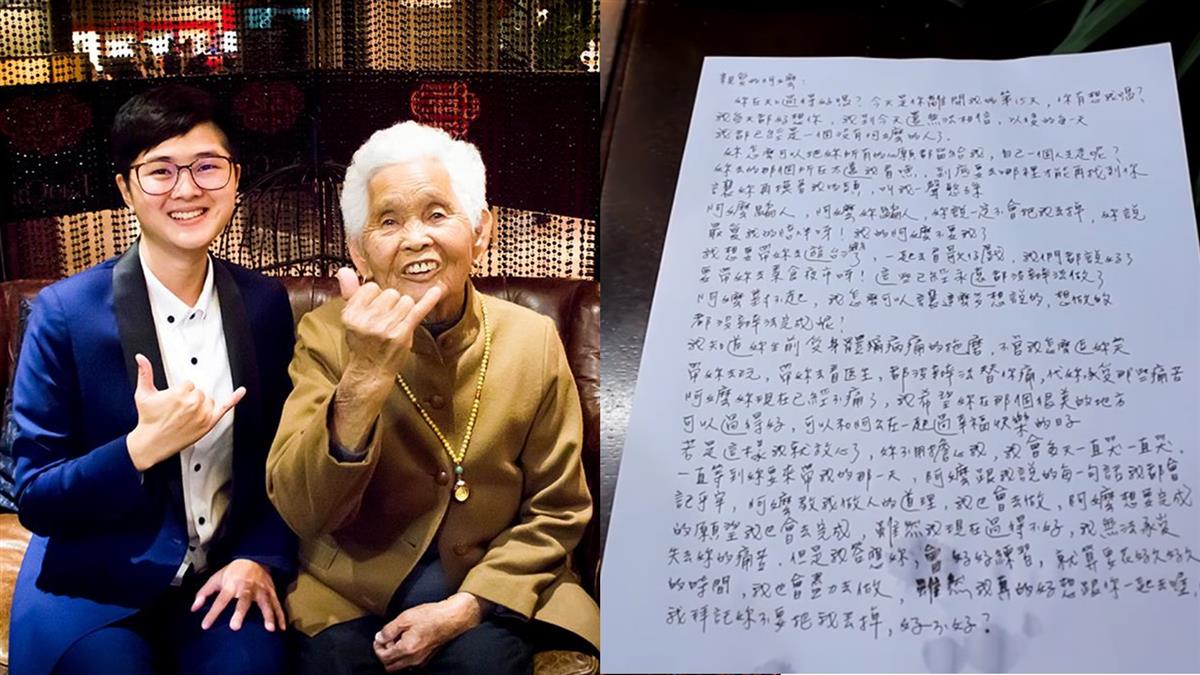 親愛的阿嬤：
妳在天上過得好嗎？今天是你離開我的第15天，你有想我嗎？
我每天都好想你，我到今天還無法相信，以後的每一天
我都已經是一個沒有阿嬤的人了。
妳怎麼可以把妳所有的心願都留給我，自己一個人走呢？
妳去的那個所在太遠我看嘸，到底要去哪裡才能再找到你
讓妳再摸摸我的頭，叫我一聲
阿嬤騙人，阿嬤妳騙人，妳說一定不會把我丟掉，妳說
最愛我的惜命命！我的阿嬤不要我了
我想要帶妳去遊台灣，一起去看歌仔戲，我們都說好了
要帶妳去美食夜市呀，這些已經永遠都沒辦法做了
阿嬤對不起，我怎麼可以讓這麼多想說的，想做的
都沒辦法完成呢？
我知道妳生前受身體病痛的拖磨，不管我怎麼逗妳笑
帶妳去玩，帶妳去看醫生，都沒辦法替你痛，代妳承受那些痛苦
阿嬤妳現在已經不痛了，我希望妳在那個很美的地方
可以過得好，可以和阿公在一起過幸福快樂的日子
若是這樣我就放心了，妳不用擔心我，我會每天一直哭一直哭，
一直等到妳要來帶我的那一天，阿嬤跟我說的每一句話我都會
記牢牢，阿嬤教我做人的道理，我也會去做，阿嬤想要完成
的願望我也會去完成，雖然我現在過得不好，我無法承受
失去妳的痛苦，但是我答應妳，會好好練習，就算要花好久好久
的時間，我也會盡力去做，雖然我真的好想跟你一起去喔，
我拜託妳不要把我丟掉，好不好？